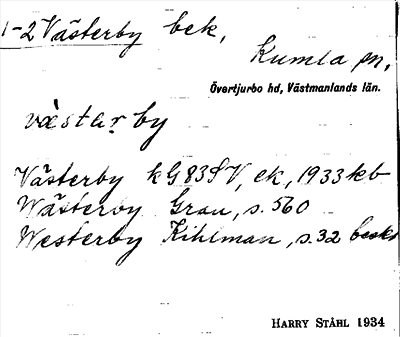 1-2 Västerby bek,
Kumla sn,
Övertjurbo hd, Västmanlands län.
västarby
Västerby kG83SV, ek, 1933 kb
Wästerby Grau, s. 560
Westerby Kihlman, s. 32 beskr
HARRY STÅHL 1934